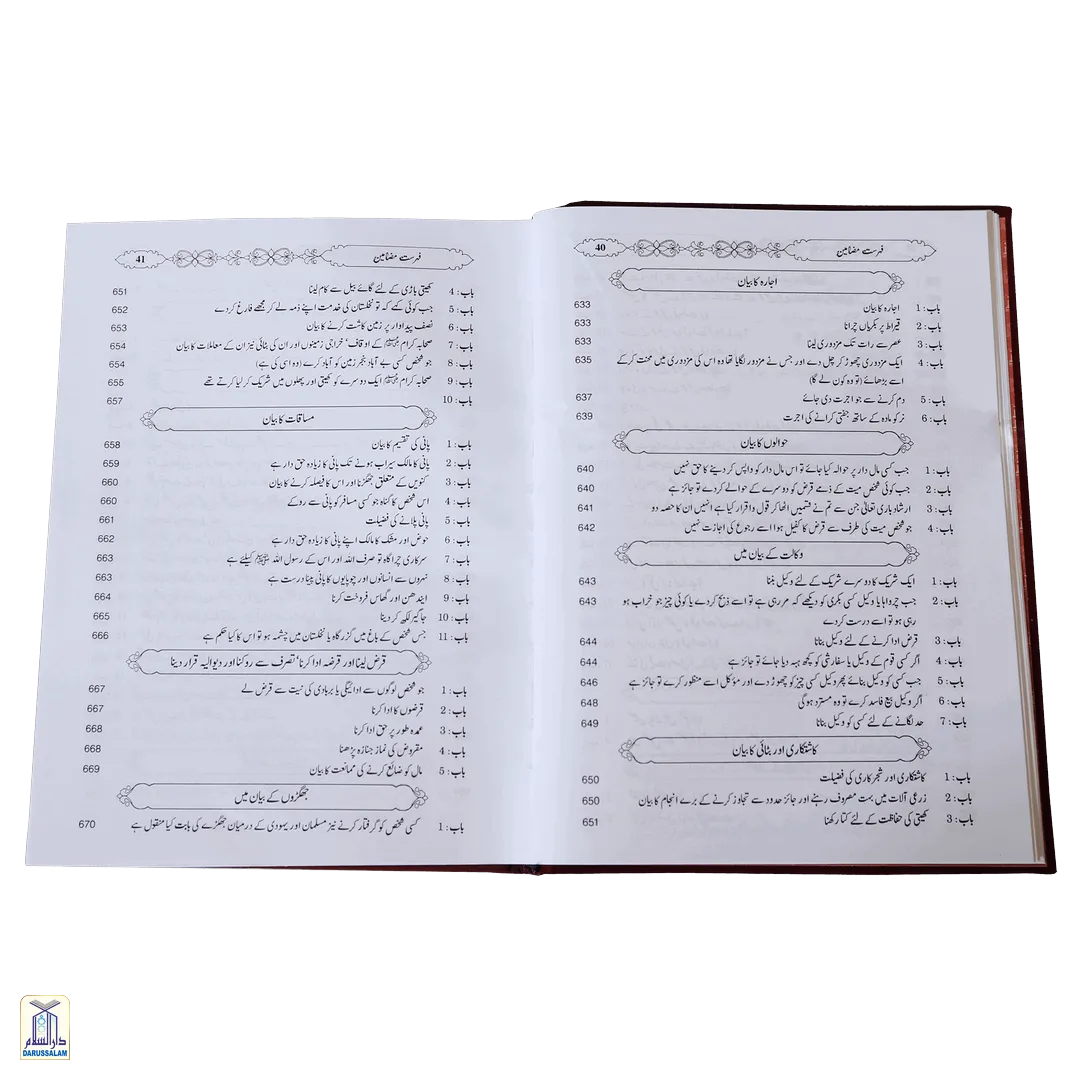 فہرست مضامین 40
اجارہ کا بیان
باب: 1 اجارہ کا بیان 633
باب: 2 قیراط پر بکریاں چرانا 633
باب: 3 عصر سے رات تک مزدوری لینا 633
باب: 4 ایک مزدوری چھوڑ کر چل دے اور جس نے مزدور لگایا تھا وہ اس کی مزدوری میں محنت کرکے 635
اسے بڑھائے (تو وہ کون لے گا)
باب: 5 دم کرنے سے جو اجرت دی جائے 637
باب: 6 نر کو مادہ کے ساتھ جفتی کرانے کی اجرت 639
حوالوں کا بیان
باب: 1 جب کسی مال دار پر حوالہ کیا جائے تو اس مال دار کو واپس کر دینے کا حق نہیں 640
باب: 2 جب کوئی شخص میت کے ذمے قرض کو دوسرے کے حوالے کردے تو جائز ہے 640
باب: 3 ارشاد باری تعالیٰ جن سے تم نے قسمیں اٹھا کر قول و اقرار کیا ہے انہیں ان کا حصہ دو 641
باب: 4 جو شخص میت کی طرف سے قرض کا کفیل ہوا اسے رجوع کی اجازت نہیں 642
وکالت کے بیان میں
باب: 1 ایک شریک کا دوسرے شریک کے لئے وکیل بننا 643
باب: 2 جب چرواہا یا وکیل کسی بکری کو دیکھے کہ مر رہی ہے تو اسے ذبح کردے یا کوئی چیز جو خراب ہو 643
رہی ہو تو اسے درست کردے
باب: 3 قرض ادا کرنے کے لئے وکیل بنانا 644
باب: 4 اگر کسی قوم کے وکیل یا سفارشی کو کچھ ہبہ دیا جائے تو جائز ہے 644
باب: 5 جب کسی کو وکیل بنائے پھر وکیل کسی چیز کو چھوڑ دے اور مؤکل اسے منظور کرے تو جائز ہے 646
باب: 6 اگر وکیل بیع فاسد کرے تو وہ مسترد ہوگی 648
باب: 7 حد لگانے کے لئے کسی کو وکیل بنانا 649
کاشتکاری اور بٹائی کا بیان
باب: 1 کاشتکاری اور شجرکاری کی فضیلت 650
باب: 2 زرعی آلات میں بہت مصروف رہنے اور جائز حدود سے تجاوز کرنے کے برے انجام کا بیان 650
باب: 3 کھیتی کی حفاظت کے لئے کتا رکھنا 651
فہرست مضامین 41
باب: 4 کھیتی باڑی کے لئے گائے بیل سے کام لینا 651
باب: 5 جب کوئی کہے کہ تو نخلستان کی خدمت اپنے ذمہ لے کر مجھے فارغ کردے 652
باب: 6 نصف پیداوار پر زمین کاشت کرنے کا بیان 653
باب: 7 صحابہ کرام ﷺ کے اوقاف' خراجی زمینوں اور ان کی بٹائی نیز ان کے معاملات کا بیان 654
باب: 8 جو شخص کسی بے آباد بنجر زمین کو آباد کرے (وہ اسی کی ہے) 654
باب: 9 صحابہ کرام ﷺ ایک دوسرے کو کھیتی اور پھلوں میں شریک کر لیا کرتے تھے 655
باب: 10 657
مساقات کا بیان
باب: 1 پانی کی تقسیم کا بیان 658
باب: 2 پانی کا مالک سیراب ہونے تک پانی کا زیادہ حق دار ہے 659
باب: 3 کنویں کے متعلق جھگڑنا اور اس کا فیصلہ کرنے کا بیان 660
باب: 4 اس شخص کا گناہ جو کسی مسافر کو پانی سے روکے 660
باب: 5 پانی پلانے کی فضیلت 661
باب: 6 حوض اور مشک کا مالک اپنے پانی کا زیادہ حق دار ہے 662
باب: 7 سرکاری چراگاہ تو صرف اللہ اور اس کے رسول اللہ ﷺ کیلئے ہے 663
باب: 8 نہروں سے انسانوں اور چوپایوں کا پانی پینا درست ہے 663
باب: 9 ایندھن اور گھاس فروخت کرنا 664
باب: 10 جاگیر لکھ کر دینا 665
باب: 11 جس شخص کے باغ میں گزرگاہ یا نخلستان میں چشمہ ہو تو اس کا کیا حکم ہے 666
قرض لینا اور قرضہ ادا کرنا' تصرف سے روکنا اور دیوالیہ قرار دینا
باب: 1 جو شخص لوگوں سے ادائیگی یا بربادی کی نیت سے قرض لے 667
باب: 2 قرضوں کا ادا کرنا 667
باب: 3 عمدہ طور پر حق ادا کرنا 668
باب: 4 مقروض کی نماز جنازہ پڑھنا 668
باب: 5 مال کو ضائع کرنے کی ممانعت کا بیان 669
جھگڑوں کے بیان میں
باب: 1 کسی شخص کو گرفتار کرنے نیز مسلمان اور یہودی کے درمیان جھگڑے کی بابت کیا منقول ہے 670
دارالسلام
DARUSSALAM